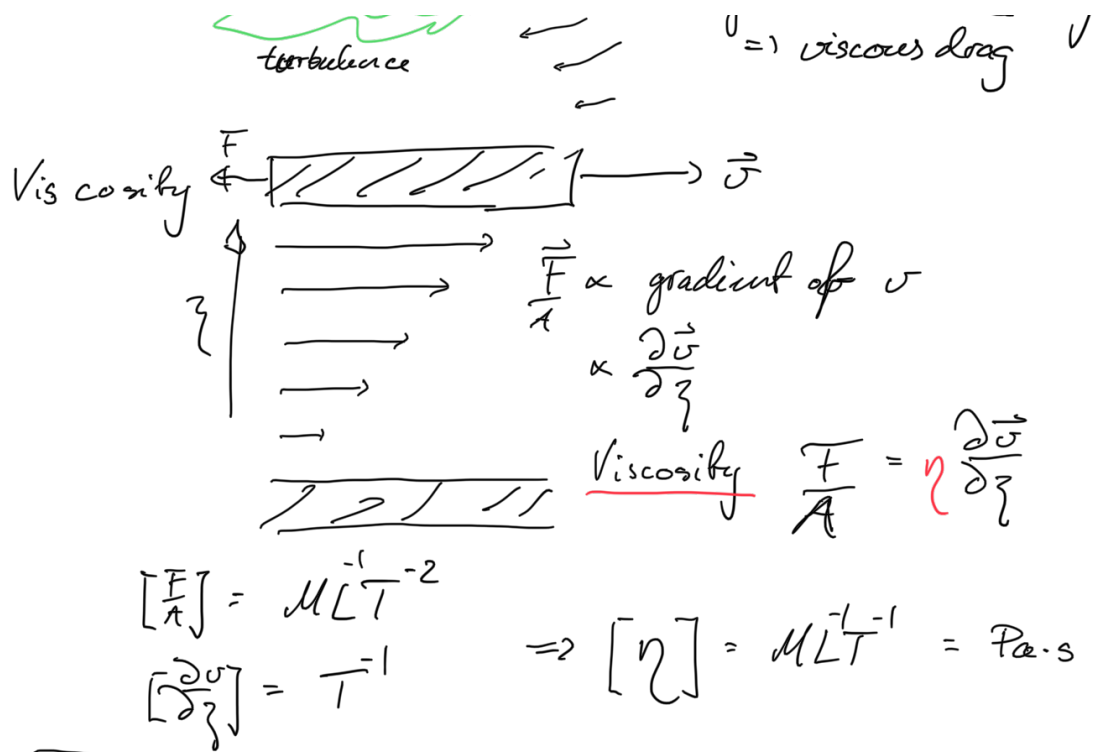 turbulence
=> viscous drag
F
Viscosity
v⃗
z
F⃗/A ∝ gradient of v
∝ ∂v⃗/∂z
Viscosity F/A = η ∂v⃗/∂z
[F/A] = ML⁻¹T⁻²
[∂v/∂z] = T⁻¹
=> [η] = ML⁻¹T⁻¹ = Pa.s